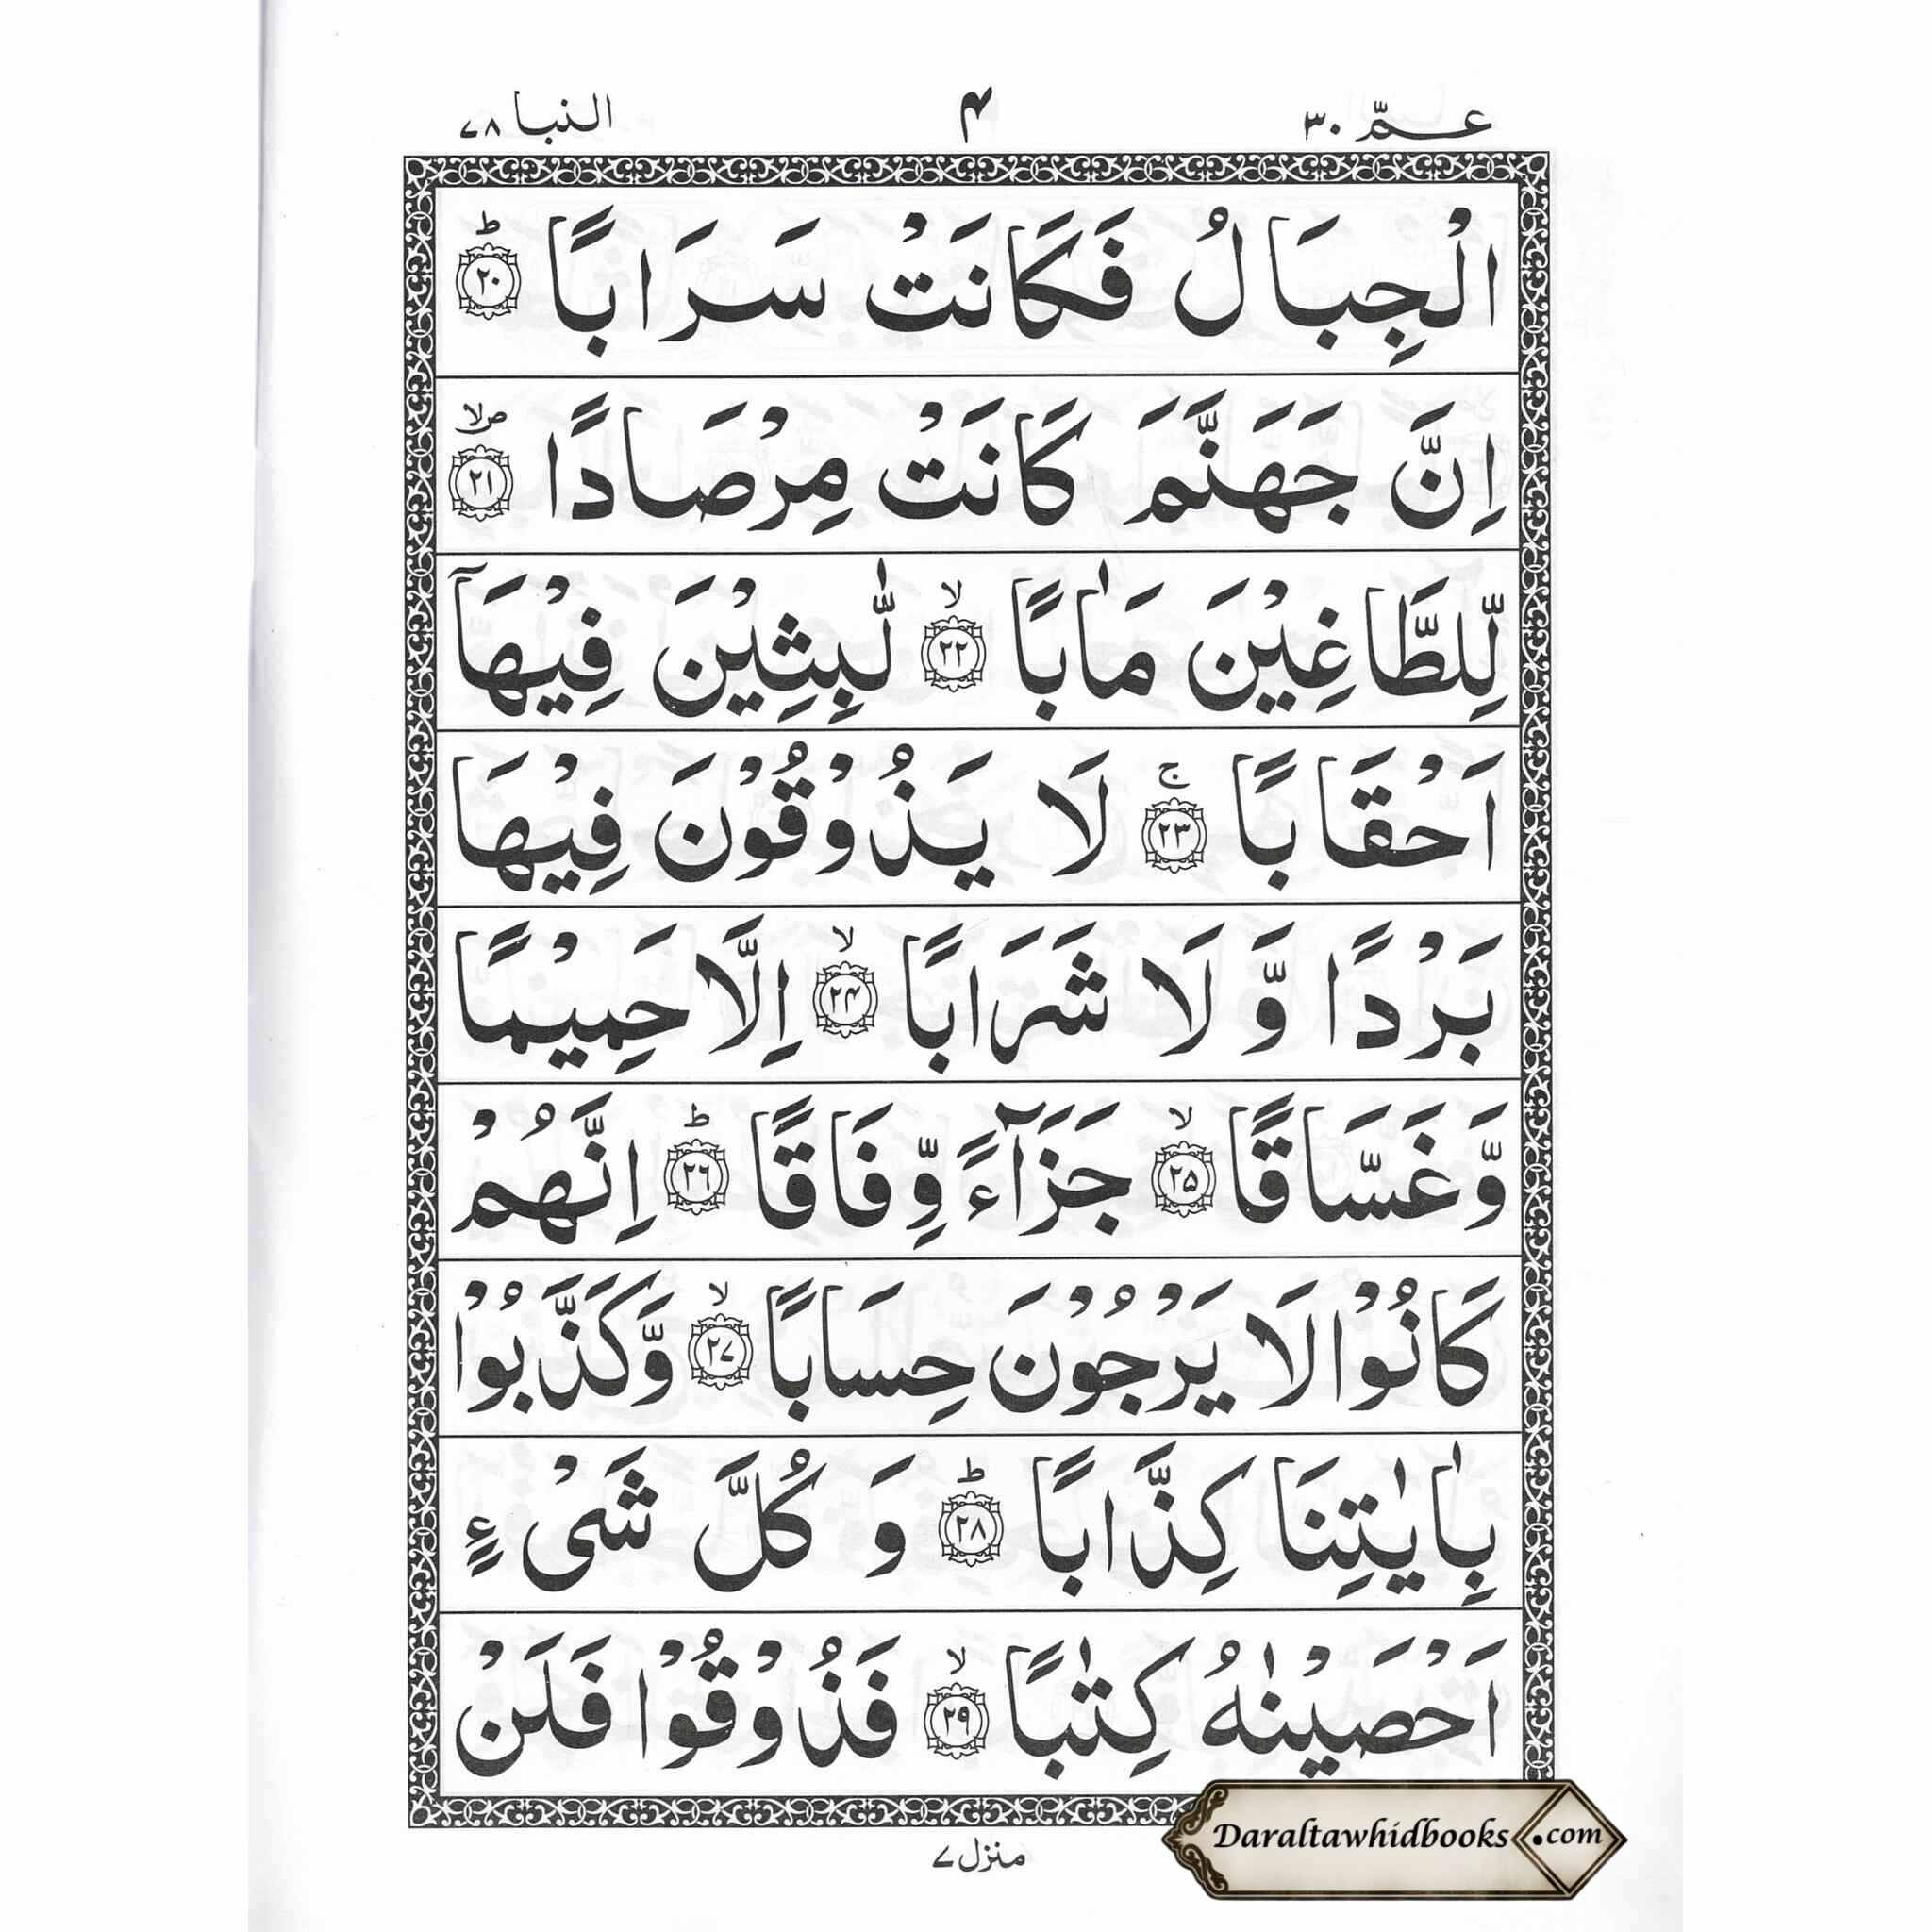 عـمّ ٣٠ ۴ النبا ٧٨
الْجِبَالُ فَكَانَتْ سَرَابًا ؕ ﴿۲۰﴾
اِنَّ جَهَنَّمَ كَانَتْ مِرْصَادًا ۪ۙ ﴿۲۱﴾
لِّلطَّاغِيْنَ مَاٰبًا ۙ ﴿۲۲﴾ لّٰبِثِيْنَ فِيْهَاۤ
اَحْقَابًا ۚ ﴿۲۳﴾ لَا يَذُوْقُوْنَ فِيْهَا
بَرْدًا وَّ لَا شَرَابًا ۙ ﴿۲۴﴾ اِلَّا حَمِيْمًا
وَّغَسَّاقًا ۙ ﴿۲۵﴾ جَزَآءً وِّفَاقًا ؕ ﴿۲۶﴾ اِنَّهُمْ
كَانُوْا لَا يَرْجُوْنَ حِسَابًا ۙ ﴿۲۷﴾ وَّكَذَّبُوْا
بِاٰيٰتِنَا كِذَّابًا ؕ ﴿۲۸﴾ وَ كُلَّ شَیْءٍ
اَحْصَيْنٰهُ كِتٰبًا ۙ ﴿۲۹﴾ فَذُوْقُوْا فَلَنْ
منزل ٧
Daraltawhidbooks.com